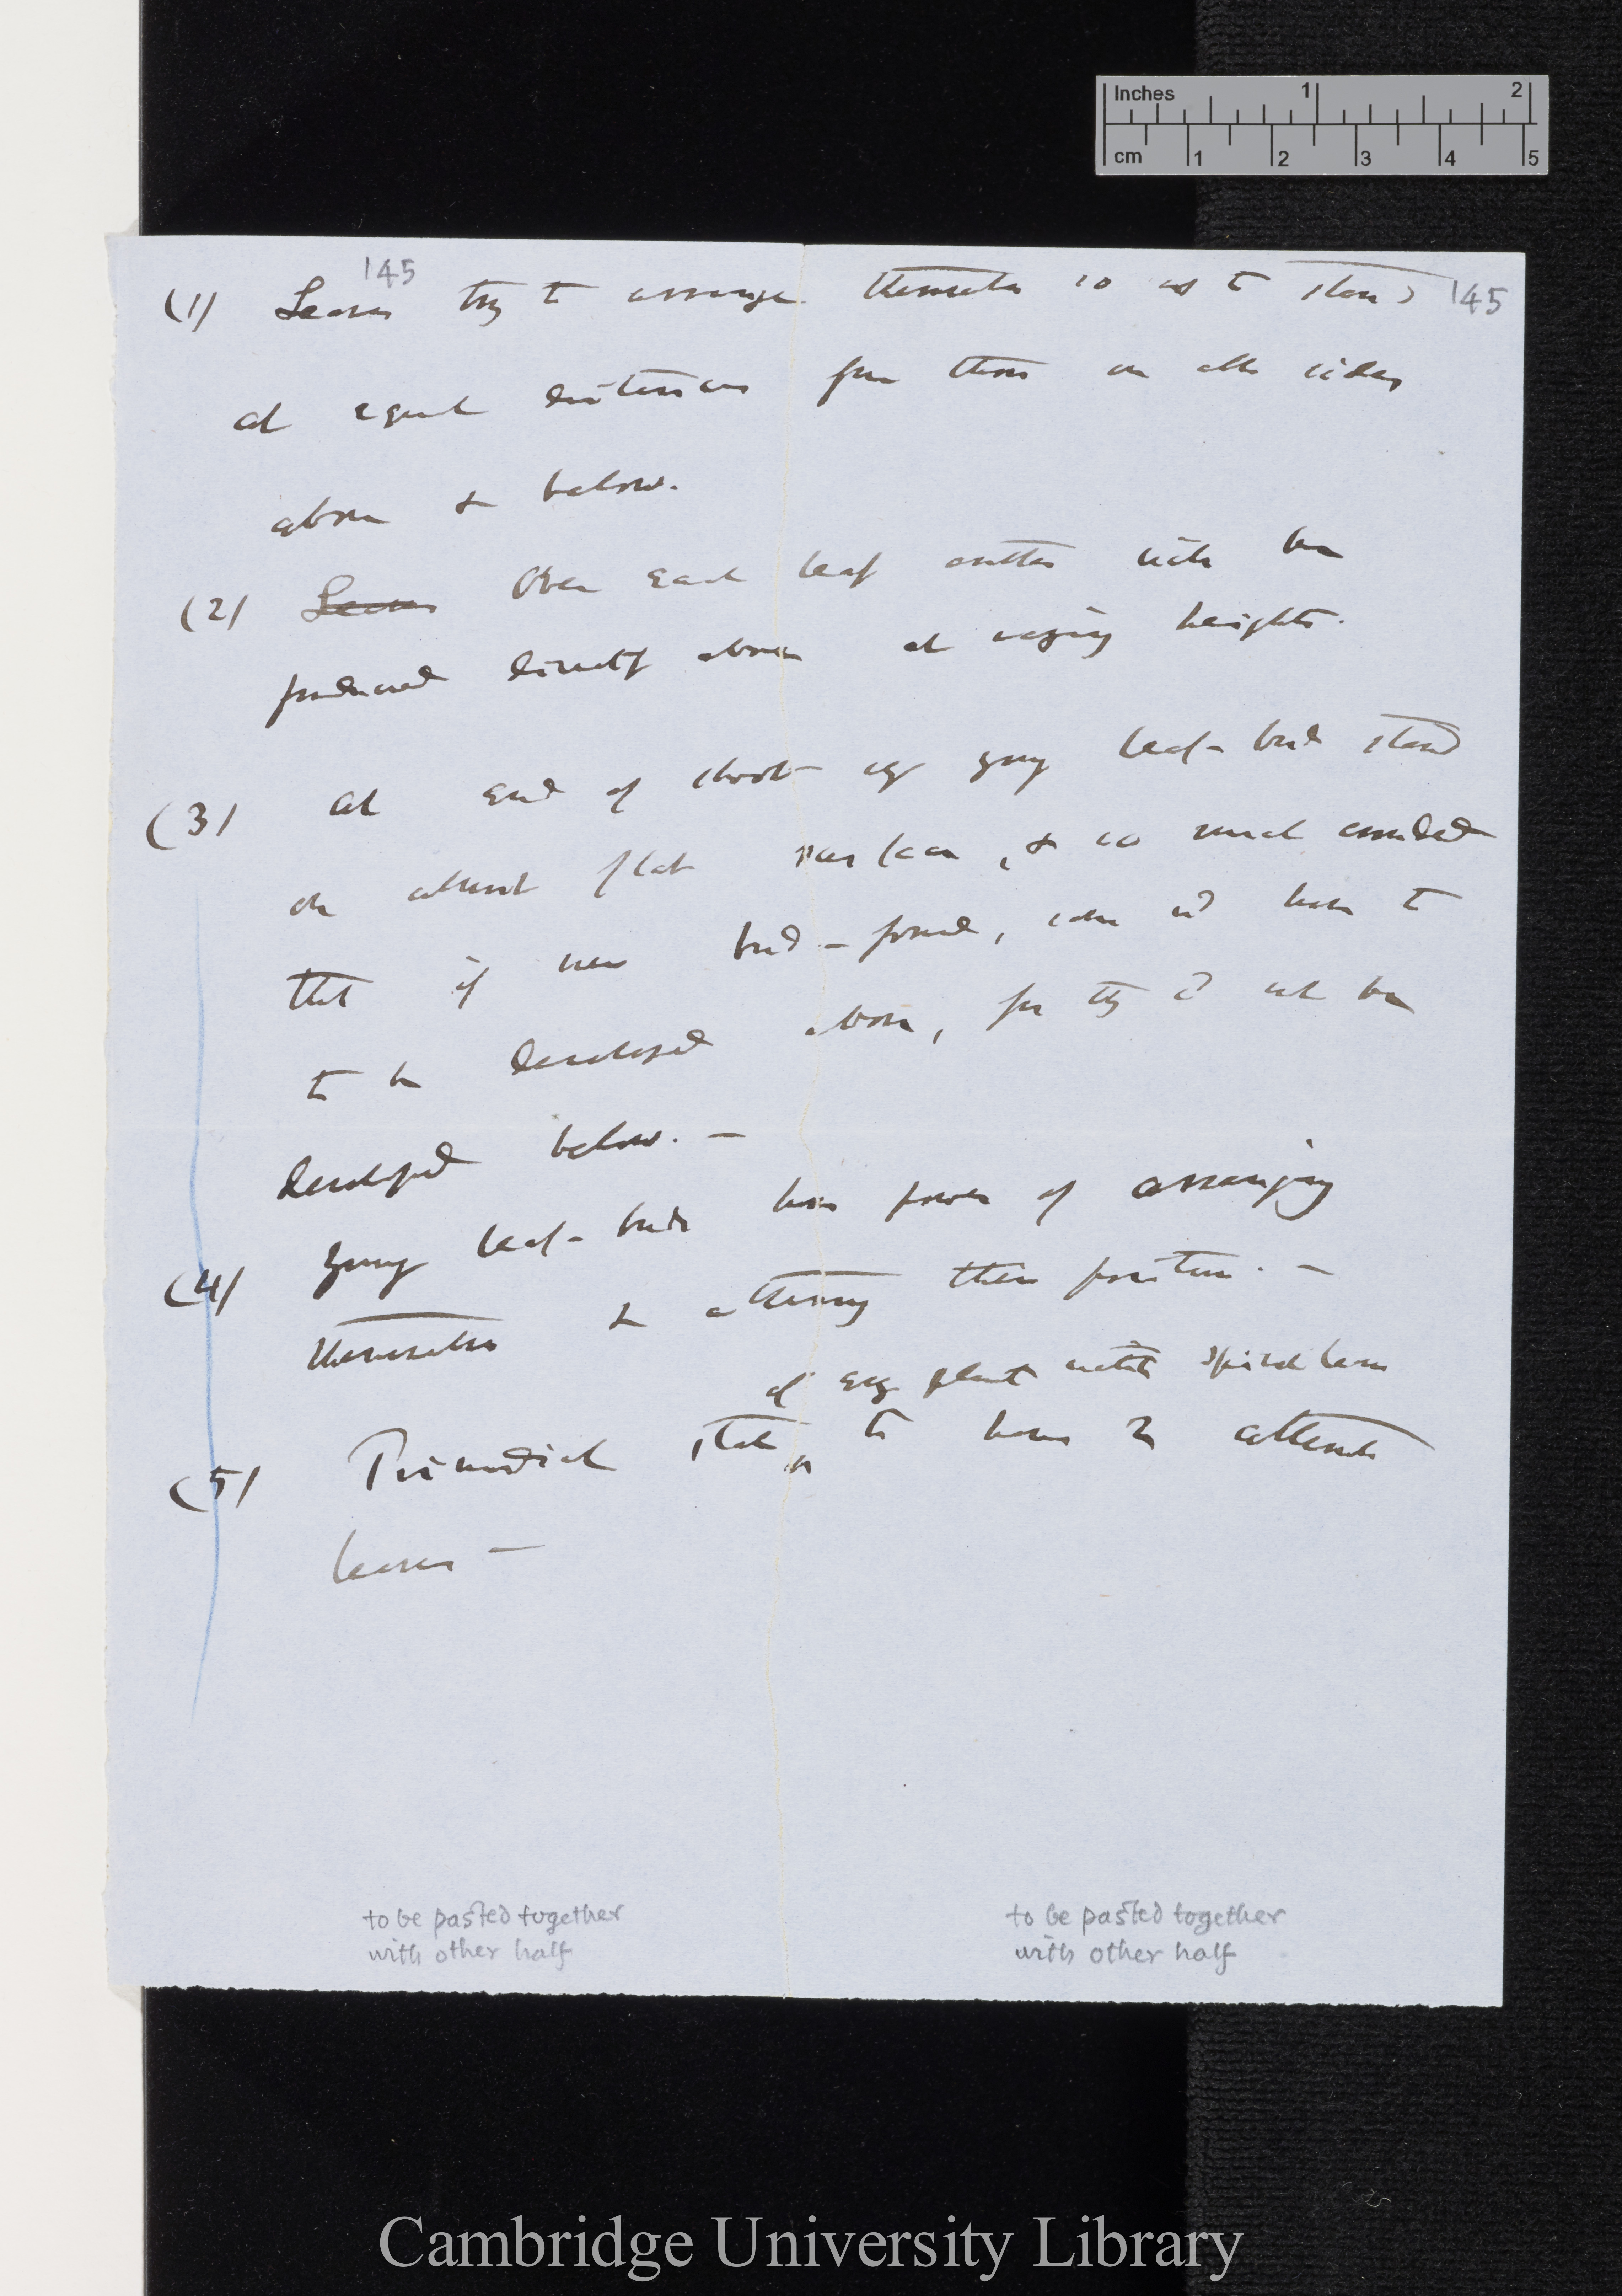 Inches 1 2
cm 1 2 3 4 5
145 145
(1) Leaves try to arrange themselves so as to stand
at equal distances from those on all sides
above & below.
(2) Leaves Over each leaf another will be
produced directly above at varying heights.
(3) At end of shoot young leaf-buds stand
on almost flat surface, & so much crowded
that if new bud formed, some wd have to
to be developed above, for they cd not be
developed below. —
(4) Young leaf-buds have power of arranging
themselves & altering their position. —
of every plant with spiral leaves
(5) Primordial state to have 2 alternate
leaves —
to be pasted together
with other half
to be pasted together
with other half
Cambridge University Library